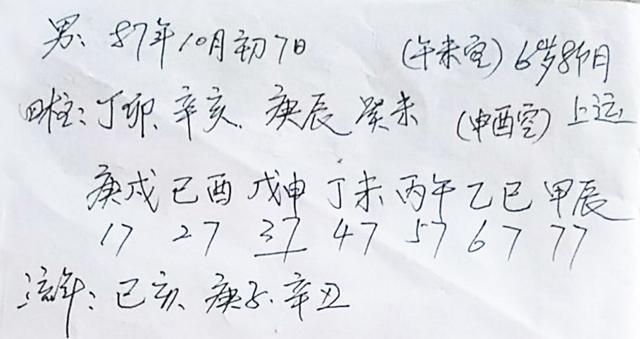 男：87年10月初7日 (午未空) 6岁8个月
四柱：丁卯 辛亥. 庚辰 癸未 (申酉空) 上运
庚戌 己酉 戊申 丁未 丙午 乙巳 甲辰
17 27 37 47 57 67 77
流年：己亥、庚子.辛丑